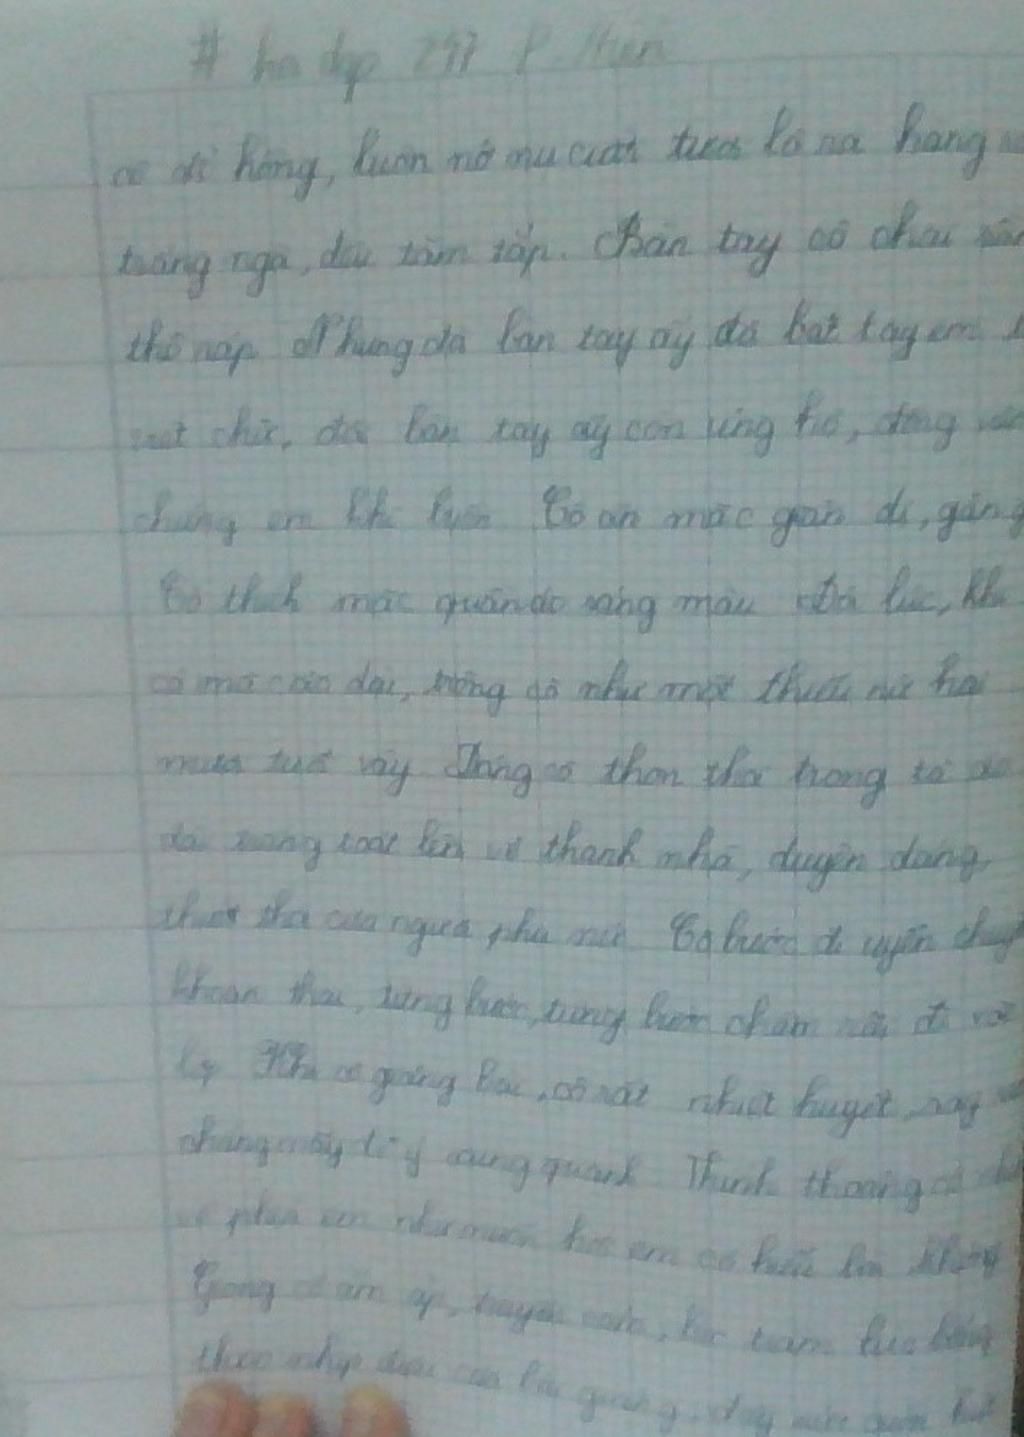 cô đỏ hồng, luôn nở nụ cười tươi lộ ra hàng
trắng ngà, đều tăm tắp. Bàn tay cô chai
thô ráp. Nhưng đó bàn tay ấy đã bắt tay em
nét chữ, đôi bàn tay ấy còn ủng hộ, động
chúng em khi Cô ăn mặc giản dị,
Cô thích mặc quần áo sáng màu. Đôi lúc, khi
cô mặc áo dài, trông cô như một thiếu nữ hai
mươi tuổi vậy. Dáng cô thon thả trong tà áo
dài trắng toát lên vẻ thanh nhã, duyên dáng,
thướt tha của người phụ nữ. Cô bước đi uyển
khoan thai, từng bước, từng bước chậm rãi đi
Khi cô giảng bài, cô rất nhiệt huyết, say
chẳng mấy để ý xung quanh. Thỉnh thoảng cô
về phía em như muốn hỏi em có hiểu bài không
Giọng cô ấm áp, truyền cảm, lúc trầm lúc bổng
theo nhịp điệu của bài giảng,